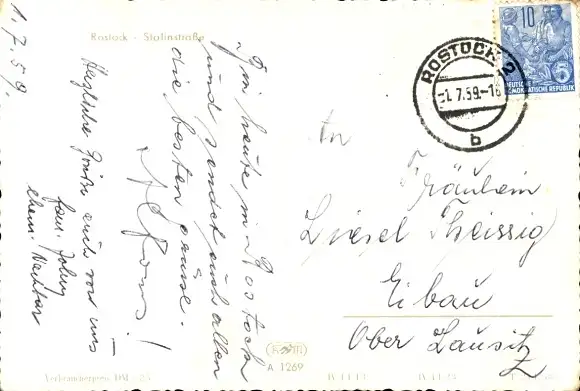 1.7.59.
Rostock - Stalinstraße
Bin heute in Rostock
und sendet euch allen
die besten Grüße.
Alfons!
Herzliche Grüße auch von uns
Fam. Johny
ehem. Nachbar
An
Fräulein
Liesel Theissig
Eibau
Ober Lausitz
10
5
DEUTSCHE
DEMOKRATISCHE REPUBLIK
ROSTOCK 2
-1.7.59.-18
b
A 1269